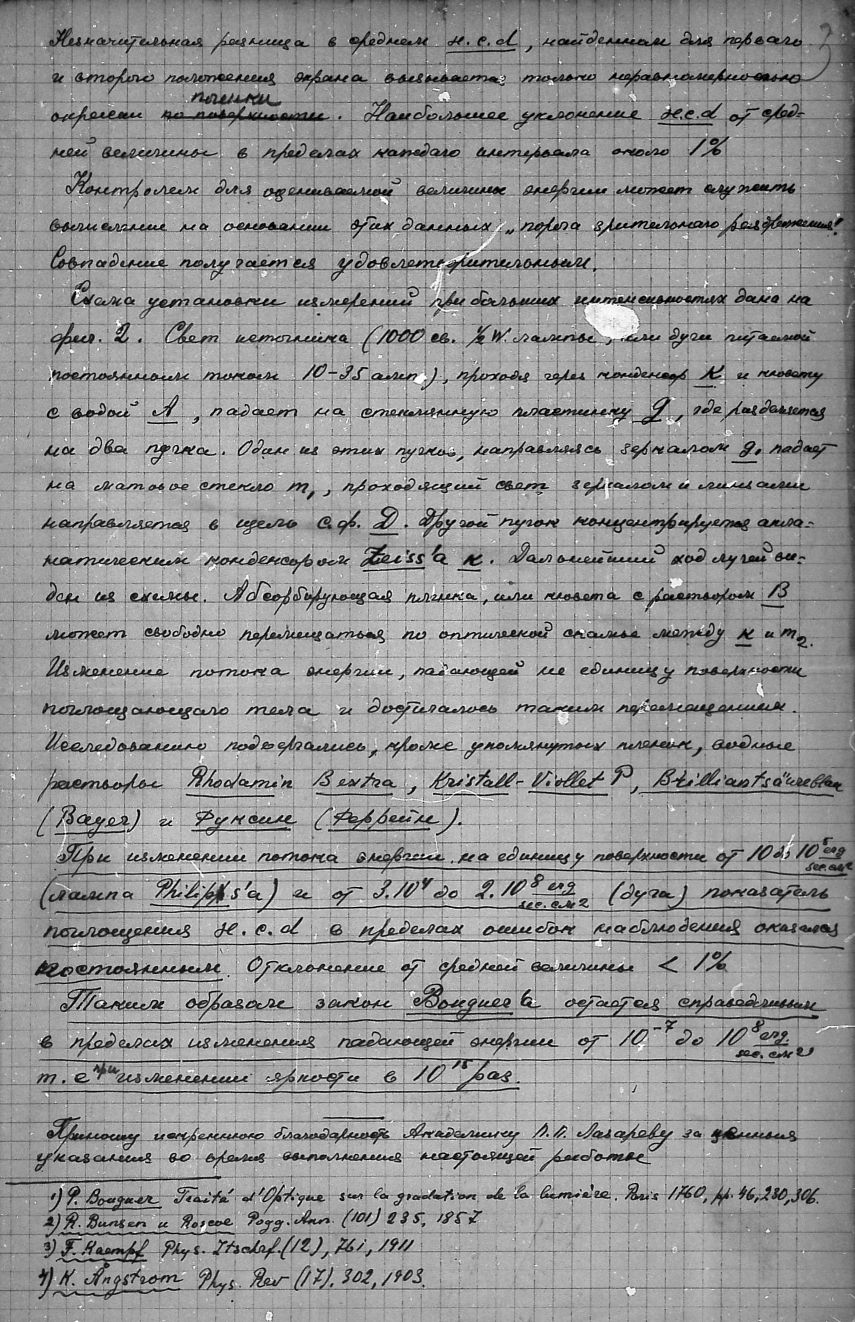 3
Незначительная разница в среднем н.c.d, найденном для перваго
и второго положения экрана вызывается только неравномерностью
окраски по поверхности пленки. Наибольшее уклонение н.c.d от сред-
ней величины в пределах каждаго интервала около 1%
Контролем для оцениваемой величины энергии может служить
вычисление на основании этих данных „порога зрительнаго раздражения".
Совпадение получается удовлетворительным.
Схема установки измерений при больших интенсивностях дана на
фиг. 2. Свет источника (1000 св. ½ W. лампы, или дуги питаемой
постоянным током 10-35 амп.), проходя через конденсор K и кювету
с водой A, падает на стеклянную пластинку g, где разделяется
на два пучка. Один из этих пучков, направляясь зеркалом g, падает
на матовое стекло m₁, проходящий свет зеркалом и линзами
направляется в щель с.ф. D. Другой пучок концентрируется апла-
натическим конденсором Zeiss'a к. Дальнейший ход лучей ви-
ден из схемы. Абсорбирующая пленка, или кювета с раствором B
может свободно перемещаться по оптической скамье между к и m₂.
Изменение потока энергии, падающей не единицу поверхности
поглощающаго тела и достигалось таким перемещением.
Исследованию подвергались, кроме упомянутых пленок, водные
растворы Rhodamin B extra, Kristall-Viollet P, Brilliantsäureblau
(Bayer) и Фуксин (Феррейн).
При изменении потока энергии на единицу поверхности от 10 до 10⁵ erg/sec.см²
(лампа Philips'a) и от 3.10⁴ до 2.10⁸ erg/sec.см² (дуга) показатель
поглощения н.c.d в пределах ошибок наблюдения оказался
постоянным. Отклонение от средней величины < 1%
Таким образом закон Bouguer'a остается справедливым
в пределах изменения падающей энергии от 10⁻⁷ до 10⁸ erg/sec.см²,
т.е при изменении яркости в 10¹⁵ раз.
Приношу искреннюю благодарность Академику П.П. Лазареву за ценныя
указания во время выполнения настоящей работы
1) P. Bouguer Traité d'Optique sur la gradation de la lumière. Paris 1760, pp. 46, 230, 306.
2) R. Bunsen и Roscoe Pogg. Ann. (101) 235, 1857
3) F. Kaempf Phys. Ztschrf. (12), 761, 1911
4) K. Ångstrom Phys. Rev (17). 302, 1903.